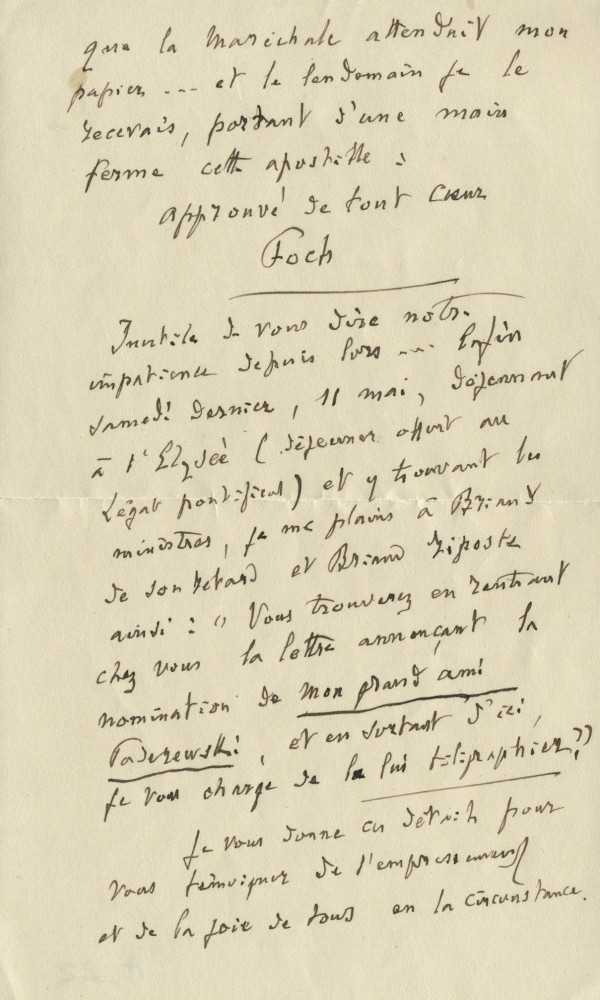 que la Maréchale attendait mon
papier --- et le lendemain je le
recevais, portant d'une main
ferme cette apostille :
approuvé de tout Cœur
Foch
Inutile de vous dire notre
impatience depuis lors --- Enfin
samedi dernier, 11 mai, déjeunant
à l'Elysée (déjeuner offert au
Légat pontifical) et y trouvant les
ministres, je me plains à Briand
de son retard et Briand riposte
ainsi : " Vous trouverez en rentrant
chez vous la lettre annonçant la
nomination de mon grand ami
Paderewski, et en sortant d'ici,
je vous charge de le lui télégraphier"
Je vous donne ces détails pour
vous témoigner de l'empressement
et de la joie de tous en la circonstance.